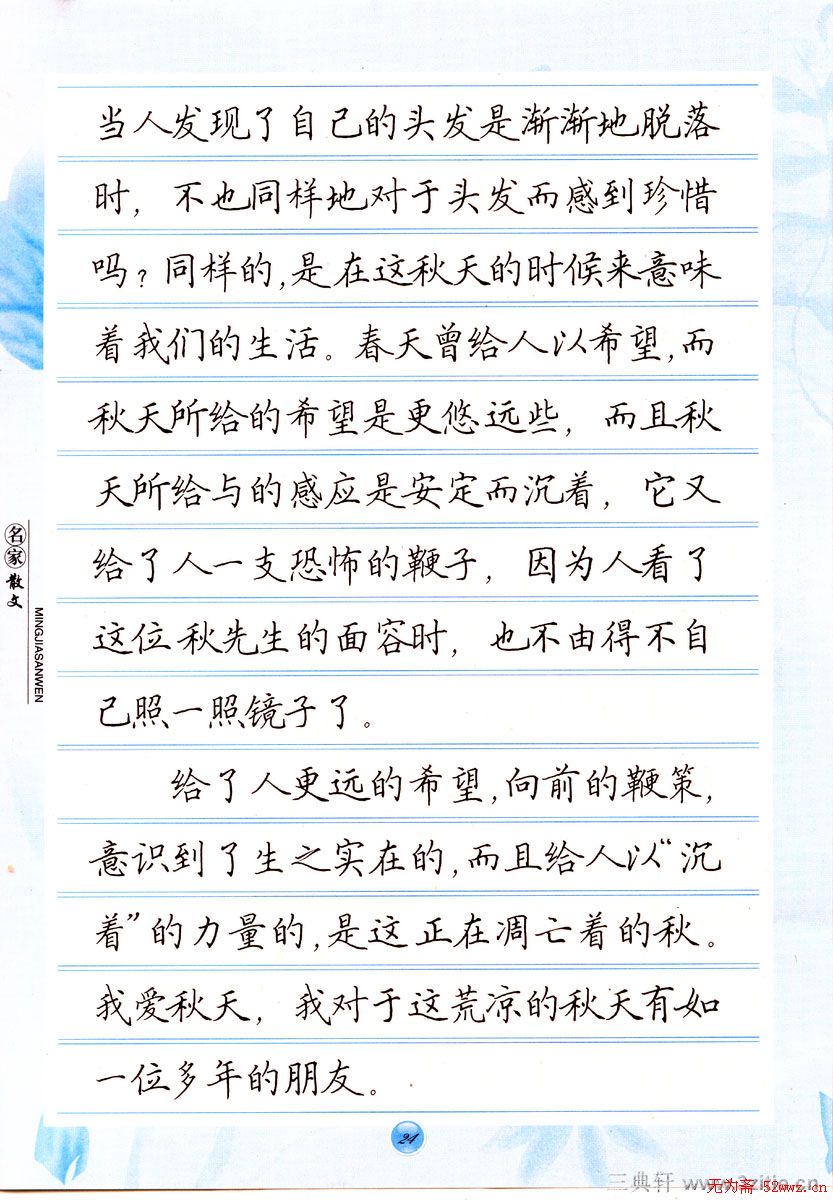 当人发现了自己的头发是渐渐地脱落
时，不也同样地对于头发而感到珍惜
吗？同样的，是在这秋天的时候来意味
着我们的生活。春天曾给人以希望，而
秋天所给的希望是更悠远些，而且秋
天所给与的感应是安定而沉着，它又
给了人一支恐怖的鞭子，因为人看了
这位秋先生的面容时，也不由得不自
己照一照镜子了。
给了人更远的希望，向前的鞭策，
意识到了生之实在的，而且给人以“沉
着”的力量的，是这正在凋亡着的秋。
我爱秋天，我对于这荒凉的秋天有如
一位多年的朋友。
名家散文
MINGJIASANWEN
21
三典轩
无为斋 52wwz.cn